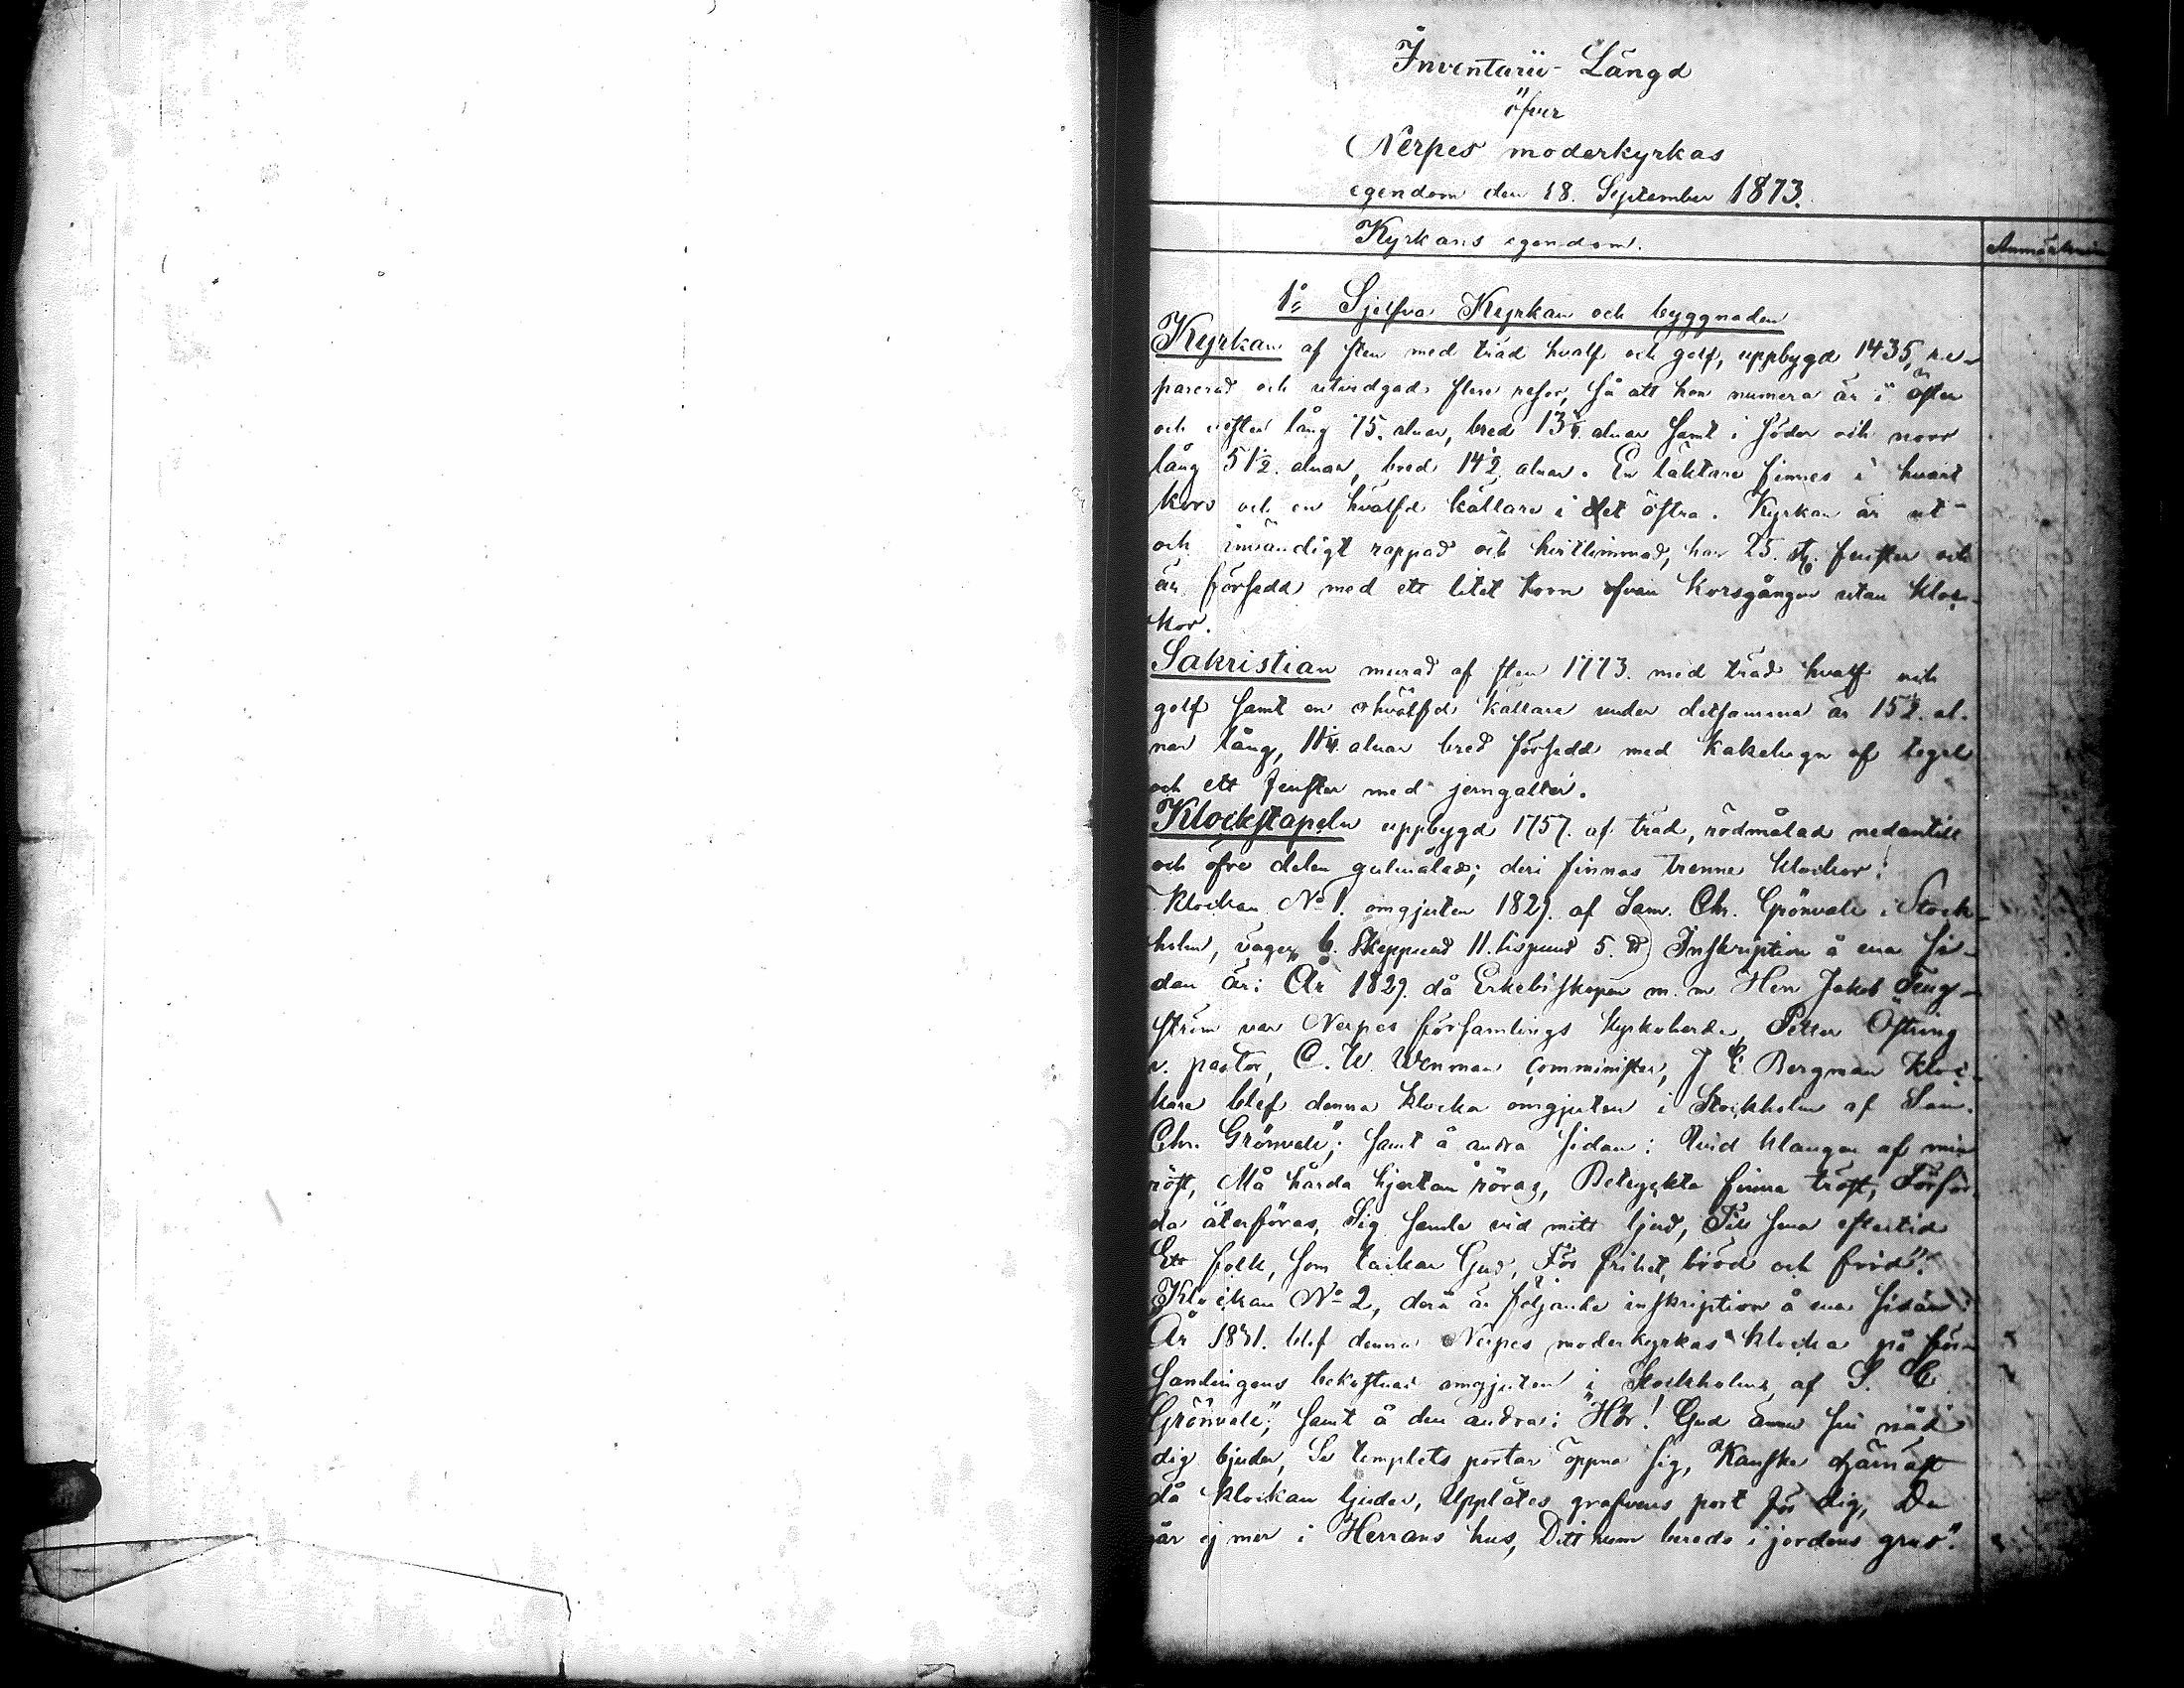 Inventarii-Längd
öfver
Nerpes moderkyrkas
egendom den 18. September 1873.
Kyrkans egendom.
Anmärknin
1o Sjelfva Kyrkan och byggnaden
Kyrkan af sten med träd hvalf och golf, uppbygd 1435, re-
parerad och utvidgad flere resor, så att hon numera är i öster
och vester lång 75. alnar, bred 13 1/4. alnar samt i söder och norr
lång 51 1/2. alnar, bred 14 1/2 alnar. En läktare finnes i hvart
kors och en hvälfd källare i det östra. Kyrkan är ut-
och invändigt rappad och hvitlimmad, har 25. st. fenster och
är försedd med ett litet torn ofvan korsgången utan kloc-
kor.
Sakristian murad af sten 1773. med träd hvalf och
golf samt en hvälfd källare under detsamma är 15 1/2. al-
nar lång, 11 1/4. alnar bred försedd med kakelugn af tegel
och ett fenster med jerngaller.
Klockstapeln uppbygd 1757. af träd, rödmålad nedantill
och öfre delen gulmålad; deri finnas trenne klockor:
Klockan No 1. omgjuten 1829. af Sam. Chr. Grönvall i Stock-
holm, väger 6. Skeppund 11. lispund 5. ℔ Inskription å ena si-
dan är: År 1829. då Erkebiskopen m. m. Herr Jakob Teng-
ström var Nerpes församlings kyrkoherde, Petter Östring
v. pastor, C. W. Wenman comminister, J E Bergman kloc-
kare blef denna klocka omgjuten i Stockholm af Sam.
Chr. Grönvall"; samt å andra sidan: "Vid klangen af min
röst, Må hårda hjertan röras, Betryckta finna tröst, Förför-
da återföras, Sig samle vid mitt ljud, Till sena eftertid
Ett folk, som tackar Gud, För frihet, bröd och frid".
Klockan No 2, derå är följande inskription å ena sidan:
År 1831. blef denna Nerpes moderkyrkas klocka på för-
samlingens bekostnad omgjuten i Stockholm af S. C.
Grönvall"; samt å den andra: "Hör! Gud ännu sin nåd
dig bjuder, Se templets portar öppna sig, Kanske därnäst
då klockan ljuder, Upplåtes grafvens port för dig, Du
är ej mer i Herrans hus, Ditt rum bereds i jordens grus".